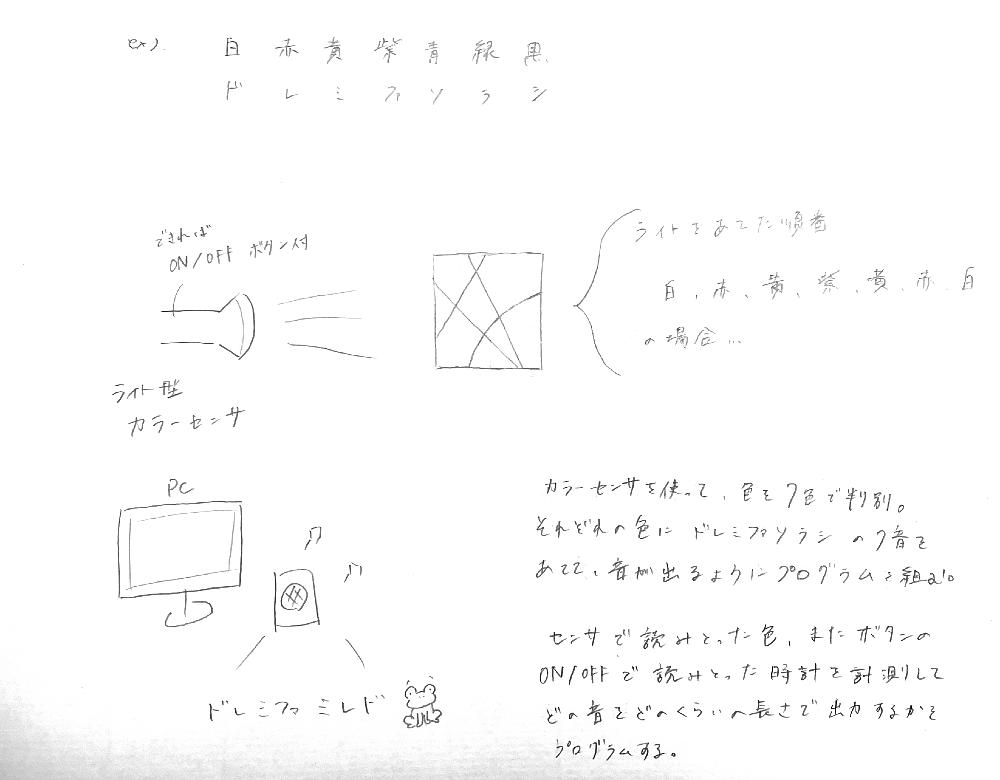 ex).
白 赤 黄 紫 青 緑 黒
ド レ ミ ファ ソ ラ シ
できれば
ON/OFF ボタン付
ライト型
カラーセンサ
ライトをあてた順番
白、赤、黄、紫、黄、赤、白
の場合...
PC
ドレミファミレド
カラーセンサを使って、色を7色で判別。
それぞれの色に ドレミファソラシ の7音を
あてて、音が出るようにプログラムを組む。
センサで読みとった色、またボタンの
ON/OFFで読みとった時計を計測して
どの音をどのくらいの長さで出力するかを
プログラムする。